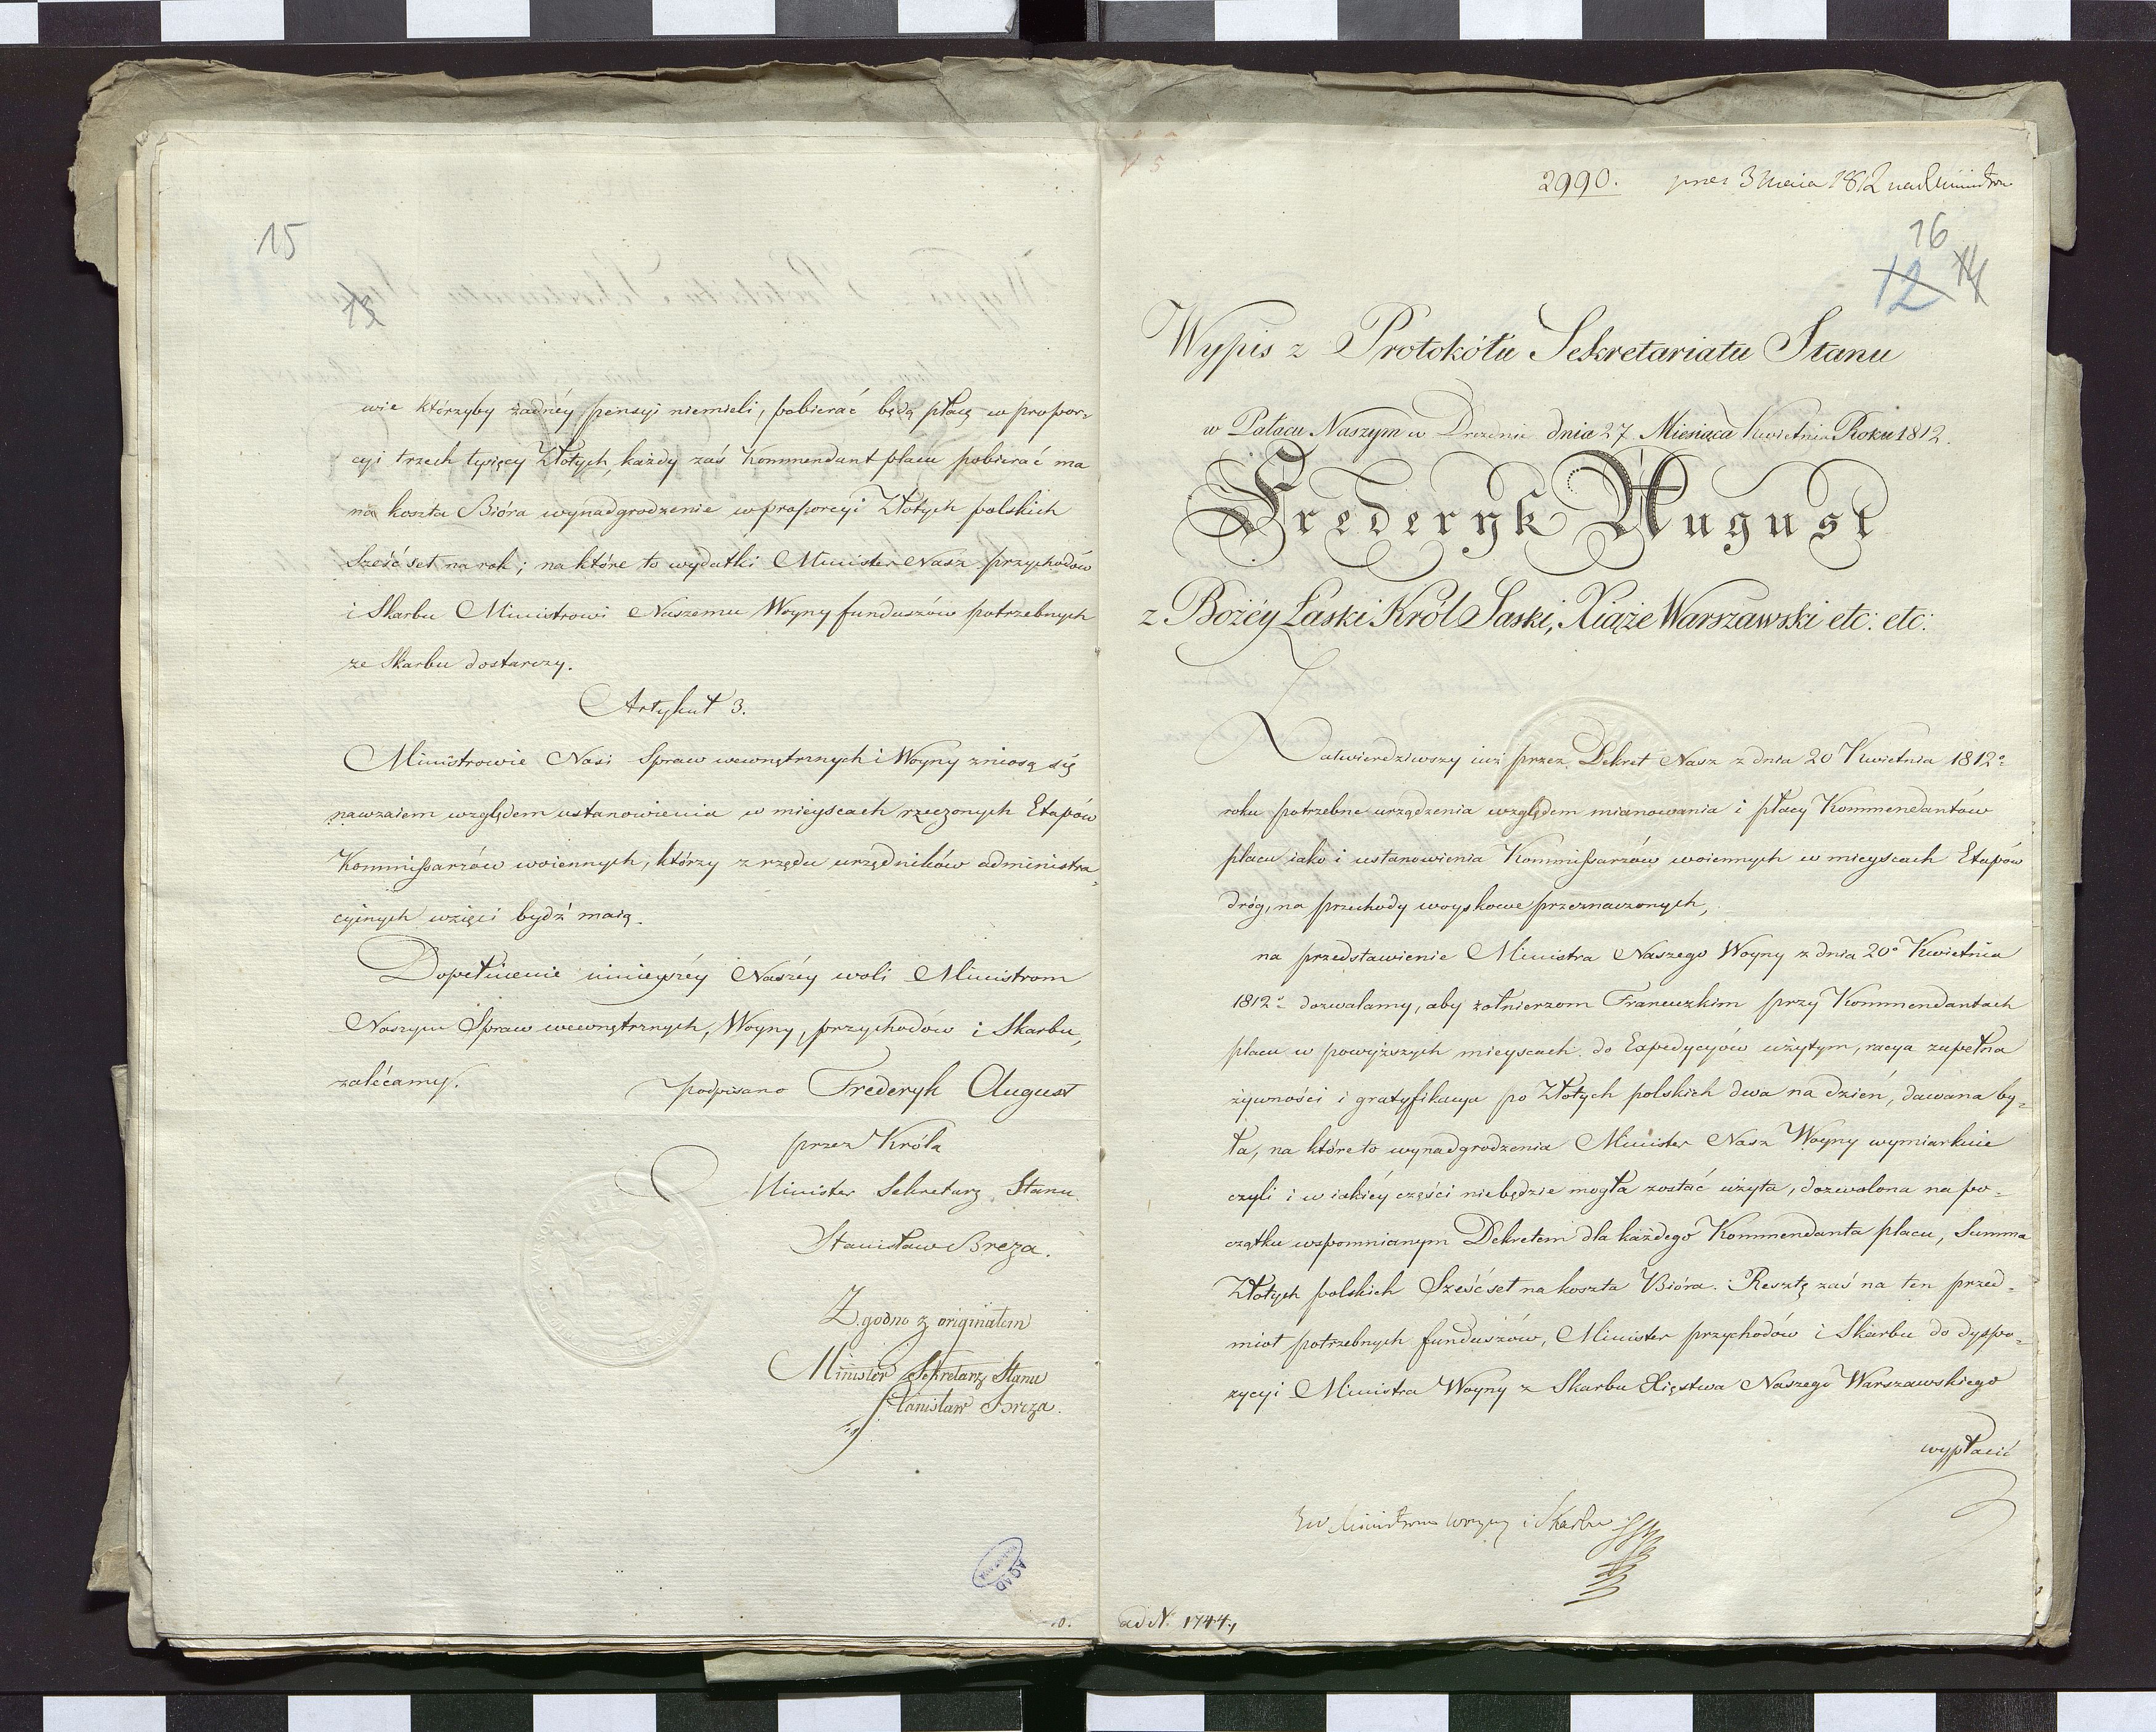 15
13
wie którzyby żadnéy pensyi niemieli, pobierać będą płacę w propor-
cyi trzech tysięcy Złotych, każdy zaś Kommendant placu pobierać ma
na koszta Bióra wynadgrodzenie w proporcyi Złotych polskich
Sześć set na rok; na które to wydatki Minister Nasz przychodów
i Skarbu Ministrowi Naszemu Woyny funduszów potrzebnych
ze Skarbu dostarczy.
Artykuł 3.
Ministrowie Nasi Spraw wewnętrznych i Woyny zniosą się
nawzaiem względem ustanowienia w mieyscach rzeczonych Etapów
Kommissarzów woiennych, którzy z rzędu urzędników administra-
cyinych wzięci bydź maią.
Dopełnienie ninieyszéy Naszéy woli Ministrom
Naszym Spraw wewnętrznych, Woyny, przychodów i Skarbu,
zalécamy.
podpisano Frederyk August
przez Króla
Minister Sekretarz Stanu
Stanisław Breza.
Zgodno z originałem
Minister Sekretarz Stanu
Stanisław Breza.
AGAD
ad N. 1744,
2990. 3 Maia 1812
16
12 14
Wypis z Protokółu Sekretariatu Stanu
w Pałacu Naszym w Dreznie dnia 27 Miesiąca Kwietnia Roku 1812.
Frederyk August
z Bożéy Łaski Król Saski, Xiąże Warszawski etc: etc:
Zatwierdziwszy iuż przez Dekret Nasz z dnia 20 Kwietnia 1812º
roku potrzebne urządzenia względem mianowania i płacy Kommendantów
placu iako i ustanowienia Kommissarzów woiennych w mieyscach Etapów
dróg, na przechody woyskowe przeznaczonych,
na przedstawienie Ministra Naszego Woyny z dnia 20º Kwietnia
1812º dozwalamy, aby żołnierzom Francuzkim przy Kommendantach
placu w powyższych mieyscach do Expedycyów użytym, racya zupełna
żywności i gratyfikacya po Złotych polskich dwa na dzień, dawana by-
ła, na które to wynadgrodzenia Minister Nasz Woyny wymiarkuie
czyli i w iakiéy części niebędzie mogła zostać użyta, dozwolona na po-
czątku wspomnianym Dekretem dla każdego Kommendanta placu, Summa
Złotych polskich Sześć set na koszta Bióra. Resztę zaś na ten przed-
miot potrzebnych funduszów, Minister przychodów i Skarbu do dyspo-
zycyi Ministra Woyny z Skarbu Xięstwa Naszego Warszawskiego
wypłacić
Ministrom woyny i Skarbu